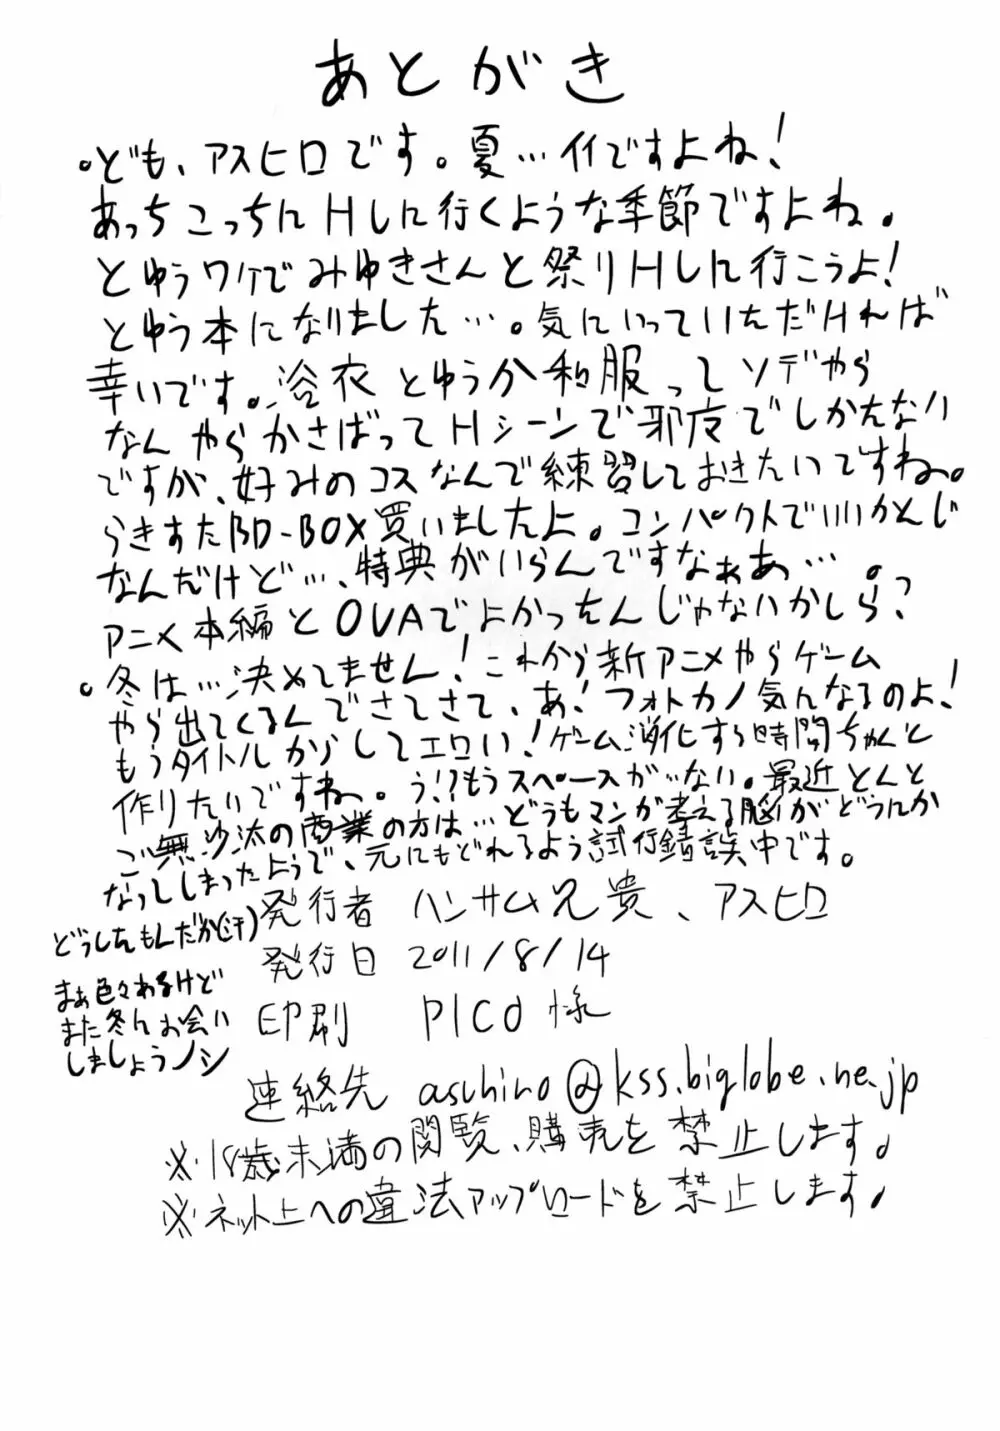 あとがき
。ども、アスヒロです。夏…イイですよね!
あっちこっちにHしに行くような季節ですよね。
とゆうワケでみゆきさんと祭りHしに行こうよ!
とゆう本になりました…。気にいっていただければ
幸いです。浴衣とゆうか和服ってソデやら
なんやらかさばってHシーンで邪魔でしかたない
ですが、好みのコスなんで練習しておきたいですね。
らきすたBD-BOX買いましたよ。コンパクトでいいかんじ
なんだけど…、特典がいらんですなぁあ…。
アニメ本編とOVAでよかったんじゃないかしら?
。冬は…決めてません!これから新アニメやらゲーム
やら出てくるんでさてさて、あ!フォトカノ気んなるのよ!
もうタイトルからしてエロい!ゲーム消化する時間ちゃんと
作りたいですね。う!?もうスペースがない。最近とんと
ご無沙汰の商業の方は…どうもマンガ考える脳がどうにか
なってしまったようで、元にもどれるよう試行錯誤中です。
どうしたもんだか(汗)
まぁ色々あるけど
また冬にお会い
しましょうノシ
発行者 ハンサム兄貴、アスヒロ
発行日 2011/8/14
印刷 PICO様
連絡先 asuhiro@kss.biglobe.ne.jp
※18歳未満の閲覧、購売を禁止します。
※ネット上への違法アップロードを禁止します。